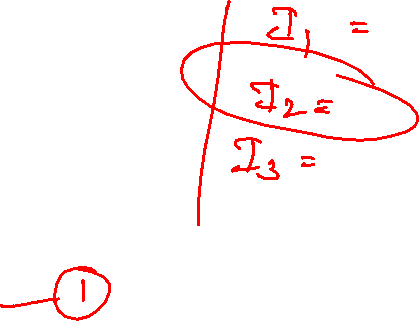 I₁ =
I₂ =
I₃ =
1